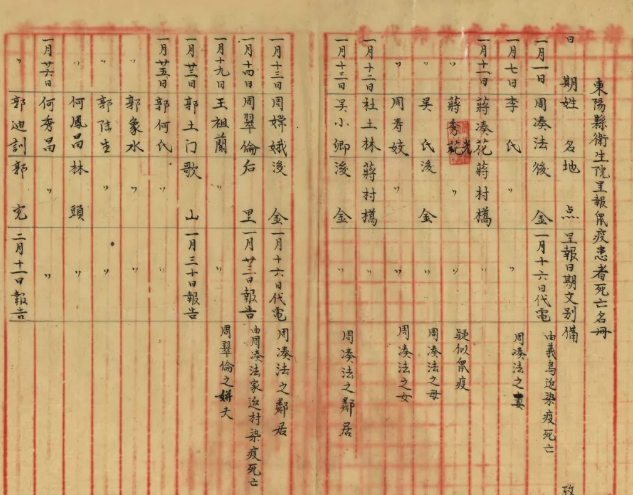 東陽縣衛生院呈報鼠疫患者死亡名冊
日期 姓名 地点 呈報日期文別 備攷
一月一日 周凑法 後金 一月十六日代電 由義烏迯染疫死亡
一月七日 李氏 〃 〃 周凑法之妻
一月十一日 蔣凑花 蔣村橋 〃 疑似鼠疫
〃 蔣秀 〃 〃
〃 吴氏 後金 〃 周凑法之母
周秀姣 〃 〃 周凑法之女
一月十二日 社土林 蔣村橋
一月十三日 吴小卿 後金 〃 周凑法之鄰居
一月十三日 周嫦娥 後金 一月十六日代電 周凑法之鄰居
一月十四日 周翠倫 后里 一月廿三日報告 由周凑法家迯村染疫死亡
一月十九日 王祖蘭 〃 〃 周翠倫之丈
一月廿三日 郭土门 歌山 一月三十日報告
一月廿五日 郭何氏 〃 〃
〃 郭象水 〃 〃
〃 郭 〃
〃 何鳳昌 林頭 〃
一月廿六日 何秀昌 〃 〃
〃 郭迪訓 郭宅 二月十一日報告